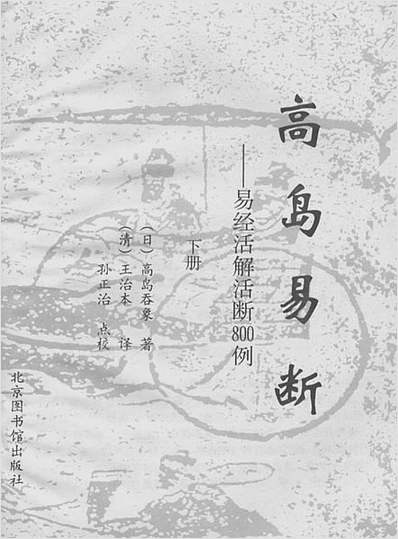 高岛易断
——易经活解活断800例
下册
(日)高岛吞象 著
(清)王治本 译
孙正治 点校
北京图书馆出版社